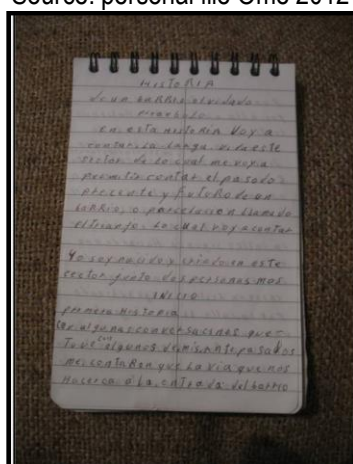 Source: personal file Omc 2012
HISTORIA
de un baRRio olvidado
en esta historia Voy a
contar La Larga vida este
sector de Lo cual me voy a
permitir contar el pasado
presente y futuro de un
baRRio, o parcelacion llamado
el triangulo. Lo cual voy a contar
Yo soy nacido y criado en este
sector junto dos personas mas
INICIO
primera Historia
Con algunas conversaciones que
Tuve con algunos de mis antepasados
me contaron que La via que nos
acerca a La entrada del barrio